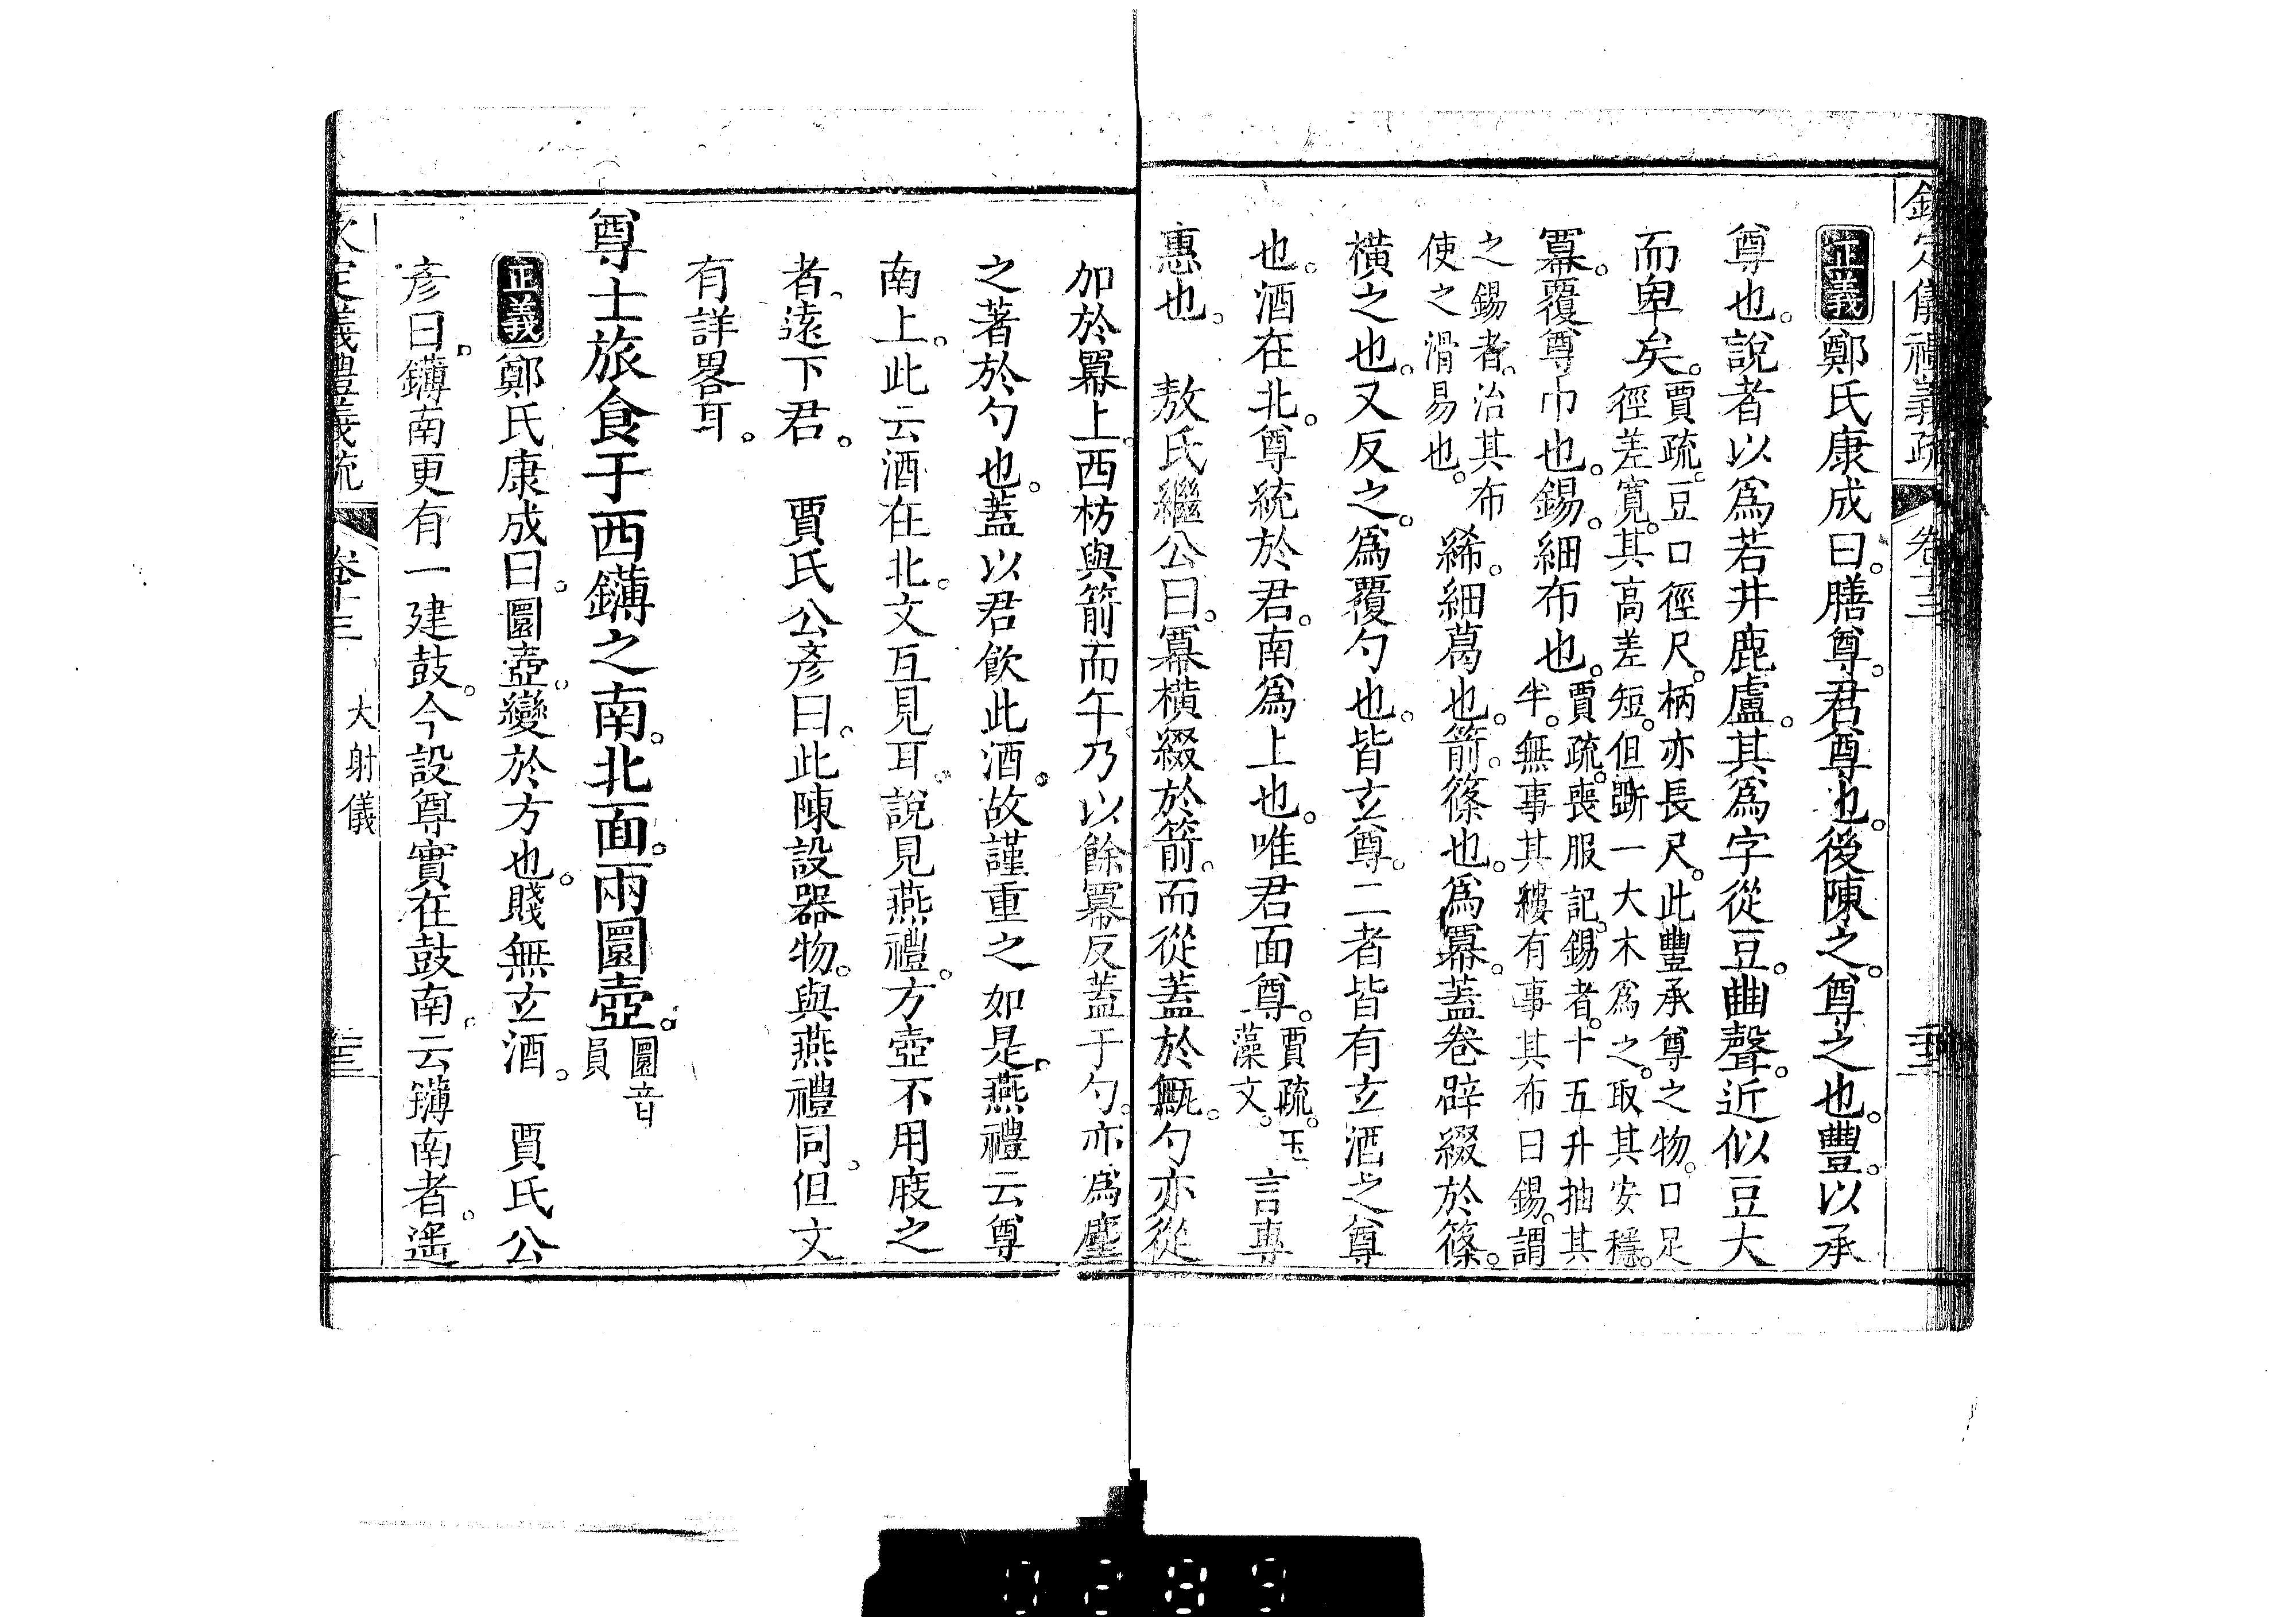 欽定儀禮義疏 卷十三
正義 鄭氏康成曰。膳尊。君尊也。後陳之。尊之也。豐。以承
尊也。說者以爲若井鹿盧。其爲字從豆。𧯮聲。近似豆大
而卑矣。賈疏。豆口徑尺。柄亦長尺。此豐承尊之物。口足
徑差寬。其高差短。但斲一大木爲之。取其安穩。
冪。覆尊巾也。錫。細布也。賈疏。喪服記。錫者。十五升抽其
半。無事其縷有事其布曰錫。謂
之錫者。治其布
使之滑易也。絺。細葛也。箭。篠也。爲冪。蓋卷辟綴於篠。
橫之也。又反之。爲覆勺也。皆玄尊。二者皆有玄酒之尊
也。酒在北。尊統於君。南爲上也。唯君面尊。賈疏。玉
藻文。言專
惠也。 敖氏繼公曰。冪橫綴於箭。而從蓋於甒。勺亦從
加於冪上。西枋與箭而午。乃以餘冪反蓋于勺。亦爲塵
之著於勺也。蓋以君飮此酒。故謹重之如是。燕禮云尊
南上。此云酒在北。文互見耳。說見燕禮。方壺不用庪之
者。遠下君。 賈氏公彥曰。此陳設器物。與燕禮同。但文
有詳畧耳。
尊士旅食于西鑮之南。北面。兩圜壺。圜音
員
正義 鄭氏康成曰。圜壺。變於方也。賤無玄酒。 賈氏公
彥曰。鑮南更有一建鼓。今設尊實在鼓南。云鑮南者。遙
欽定儀禮義疏 卷十三 大射儀